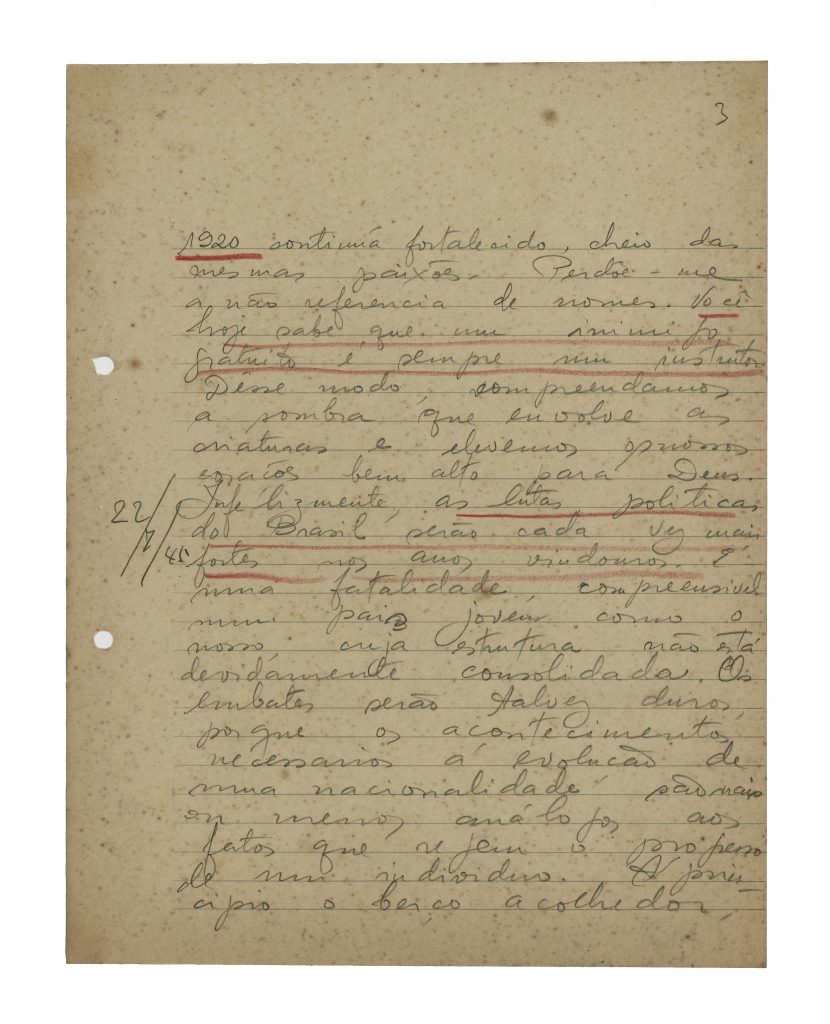 3
1920 continúa fortalecido, cheio das
mesmas paixões. Perdôe-me
a não referencia de nomes. Você
hoje sabe que um inimigo
gratuito é sempre um instrutor
Dêsse modo, compreendamos
a sombra que envolve as
criaturas e elevemos os nossos
corações bem alto para Deus.
Infelizmente, as lutas politicas
do Brasil serão cada vez mais
fortes nos anos vindouros. É
22/7/45
uma fatalidade, compreensivel
num pais joven como o
nosso, cuja estrutura não está
devidamente consolidada. Os
embates serão talvez duros,
porque os acontecimentos
necessarios á evolução de
uma nacionalidade são mais
ou menos análogos aos
fatos que rejem o progresso
de um individuo. A prin-
cipio o berço acolhedor,